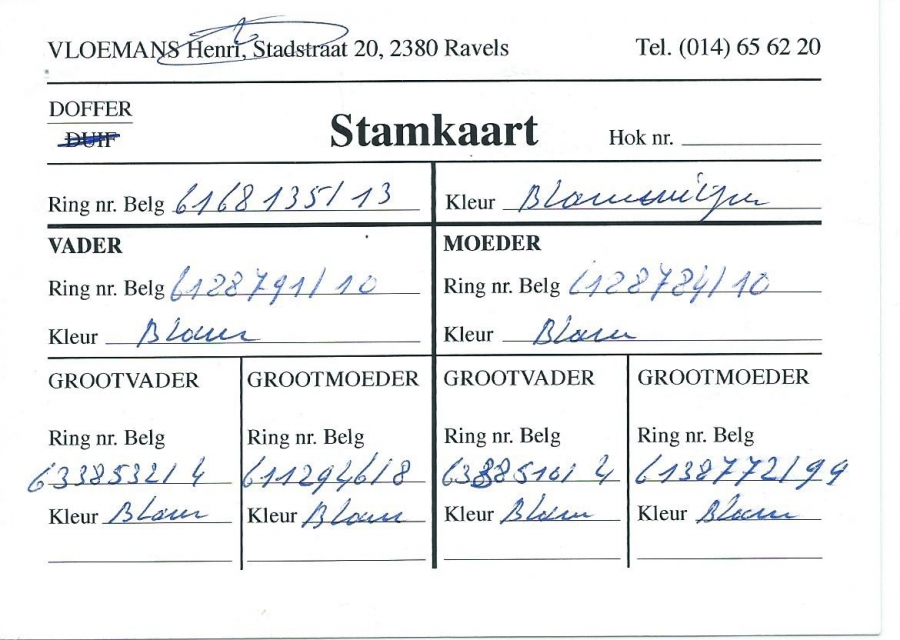 VLOEMANS Henri, Stadstraat 20, 2380 Ravels Tel. (014) 65 62 20
DOFFER
DUIF
Stamkaart
Hok nr.
Ring nr. Belg 6168135/13 Kleur
VADER MOEDER
Ring nr. Belg 6128791/10 Ring nr. Belg 6128784/10
Kleur Blauw Kleur Blauw
GROOTVADER GROOTMOEDER GROOTVADER GROOTMOEDER
Ring nr. Belg Ring nr. Belg Ring nr. Belg Ring nr. Belg
6338532/4 6112946/8 6338510/4 6138772/99
Kleur Blauw Kleur Blauw Kleur Blauw Kleur Blauw